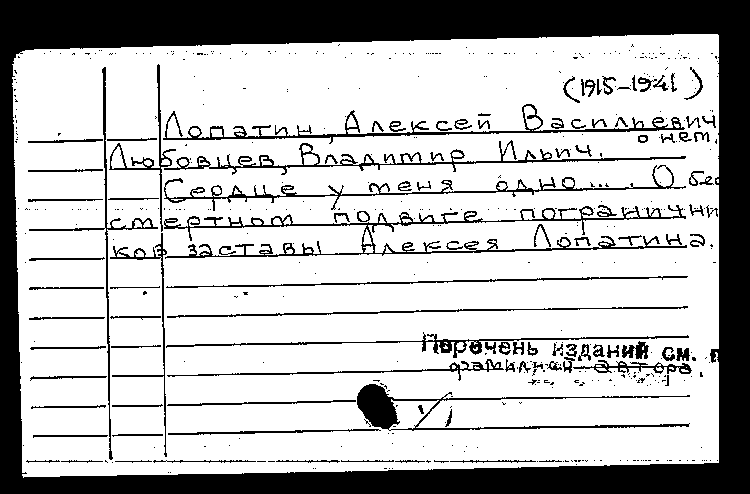 (1915-1941)
Лопатин, Алексей Васильевич
о нем.
Любовцев, Владимир Ильич.
Сердце у меня одно... . О бес
смертном подвиге погранични
ков заставы Алексея Лопатина.
Перечень изданий см. п
фамилией автора.